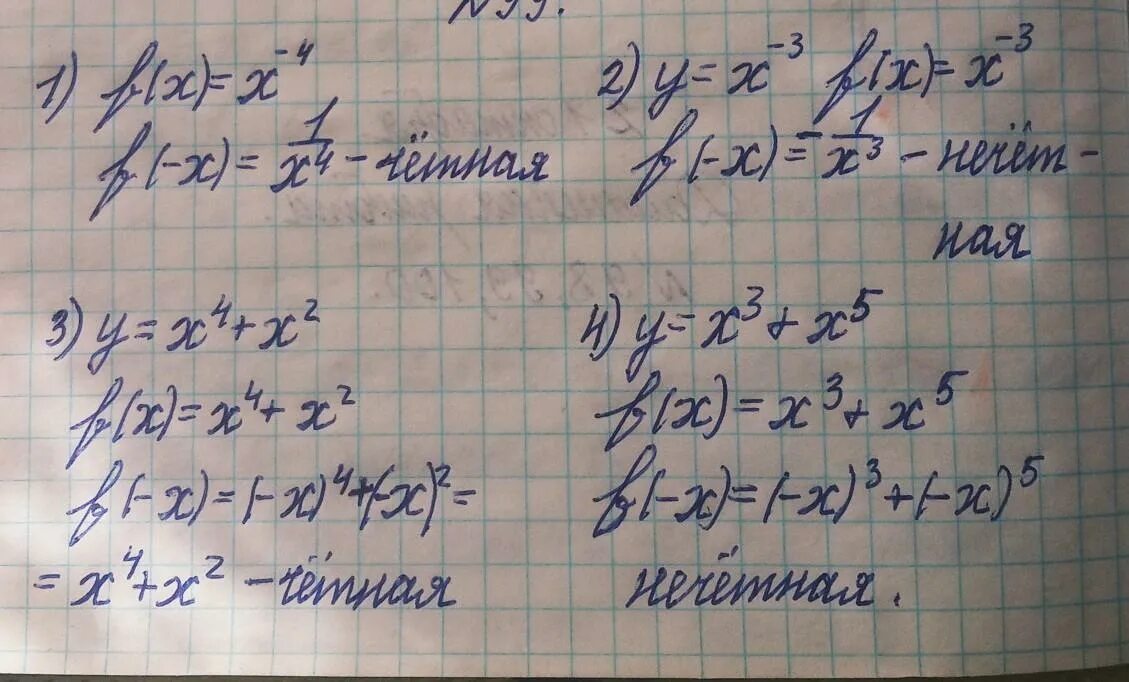 №99.
1) f(x) = x⁻⁴
f(-x) = 1/x⁴ - чётная
2) y = x⁻³ f(x) = x⁻³
f(-x) = -1/x³ - нечёт-
ная
3) y = x⁴ + x²
f(x) = x⁴ + x²
f(-x) = (-x)⁴ + (-x)² =
= x⁴ + x² - чётная
4) y = x³ + x⁵
f(x) = x³ + x⁵
f(-x) = (-x)³ + (-x)⁵
нечётная.